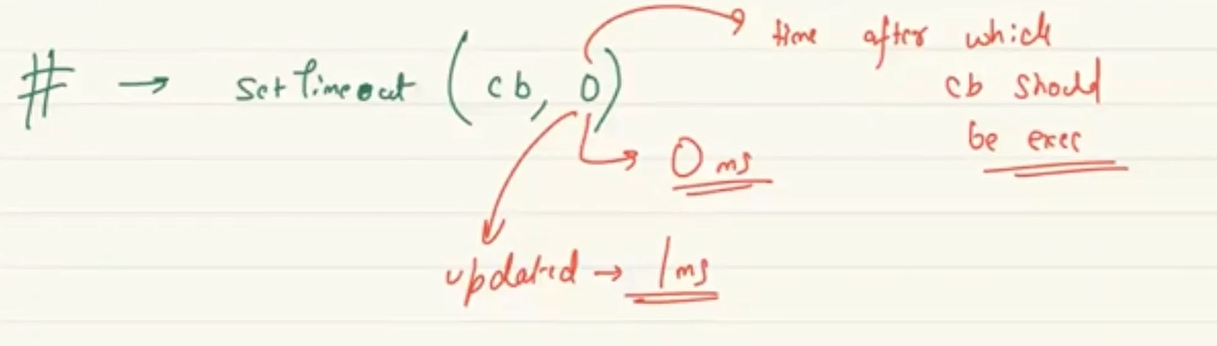 # → setTimeout (cb, 0)
time after which
cb should
be exec
0 ms
updated → 1ms